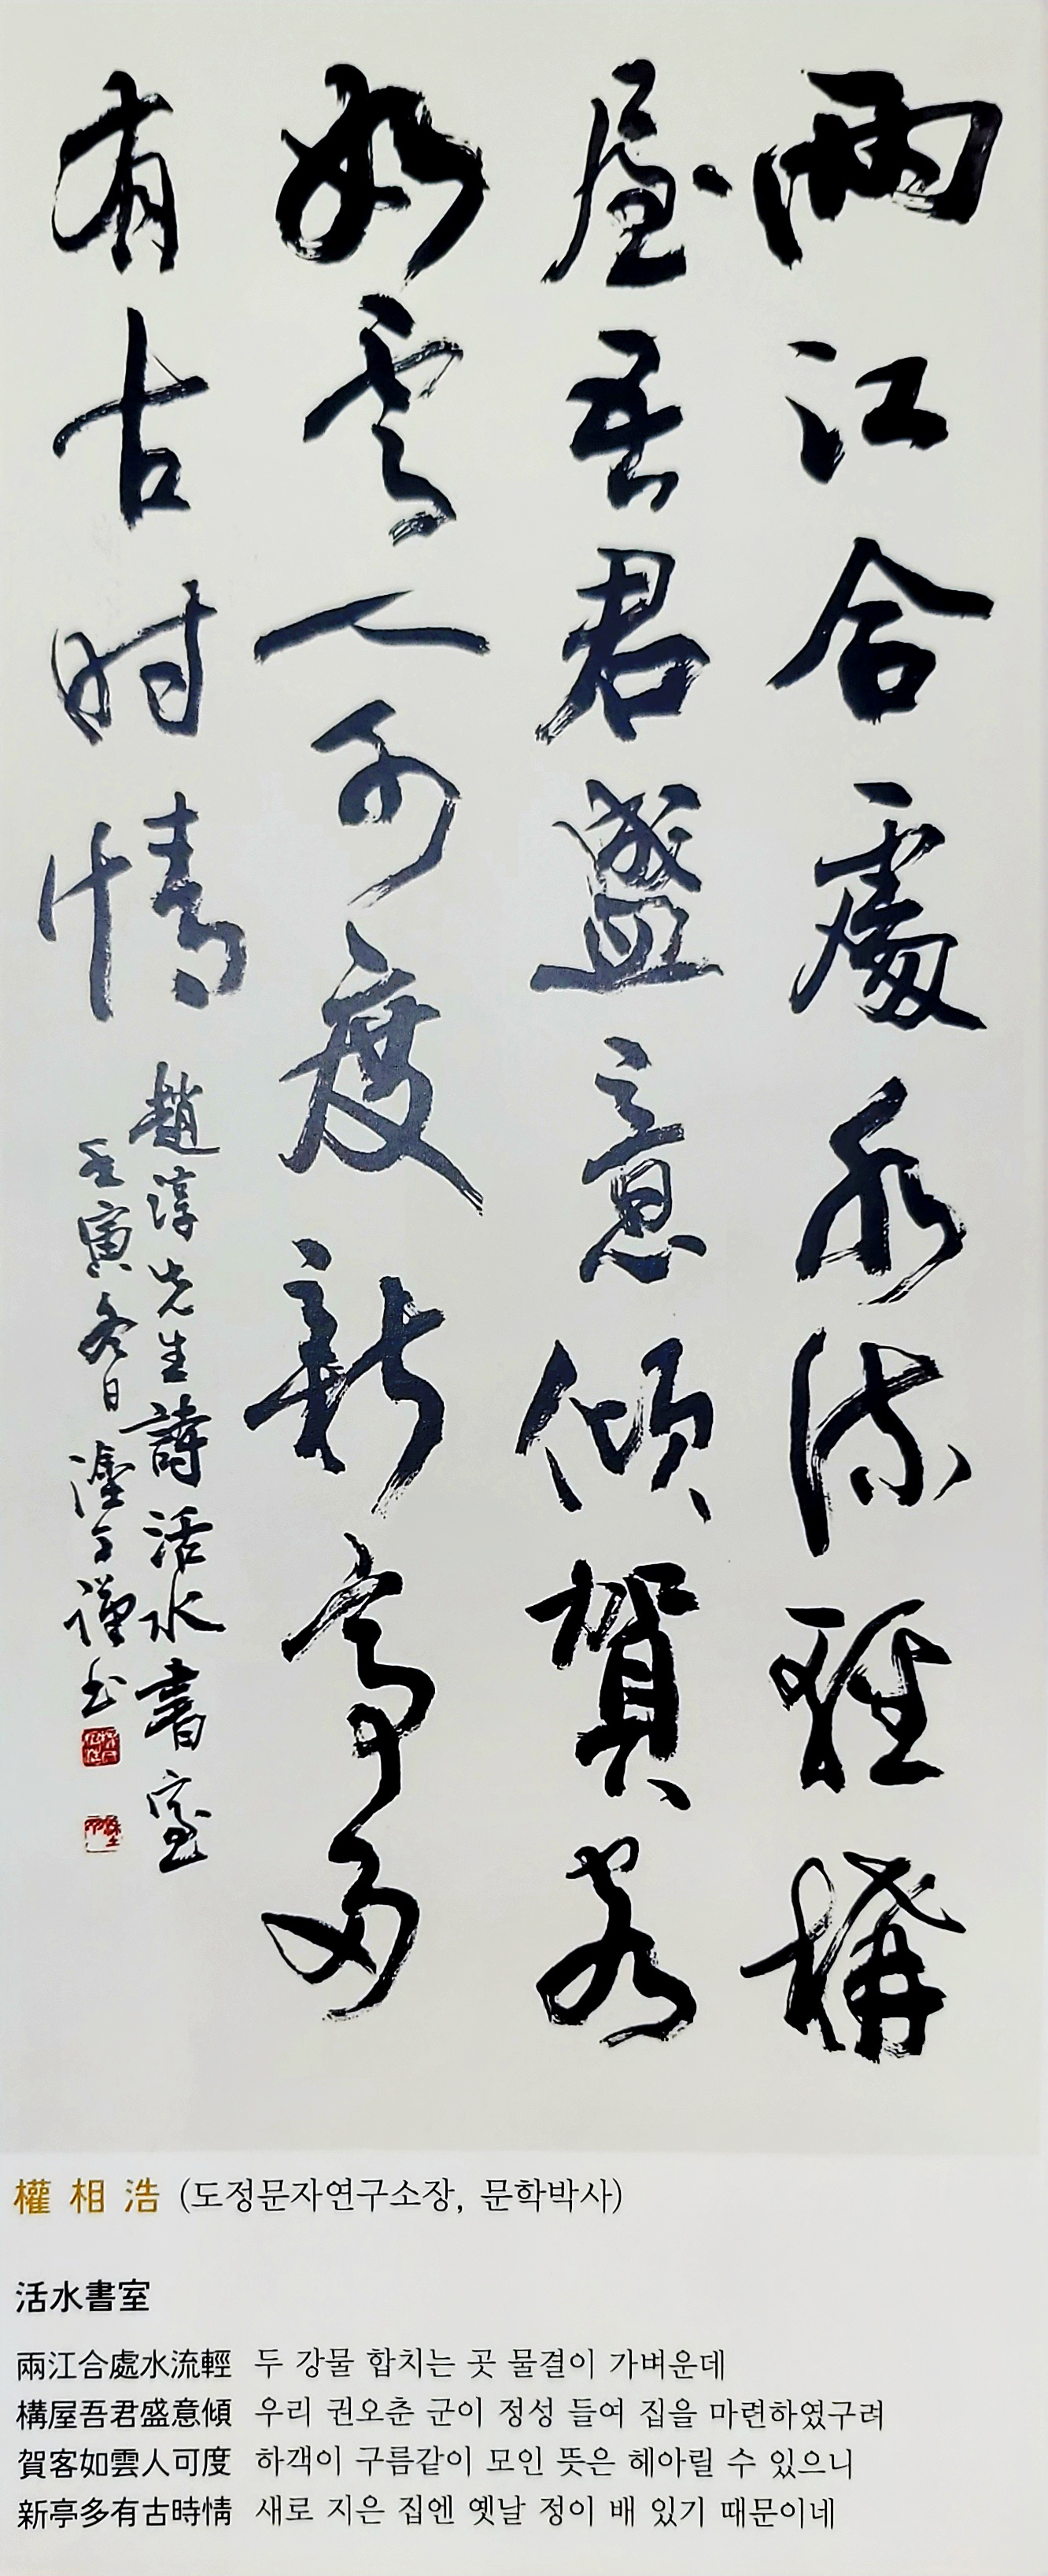 兩江合處水流輕構
屋吾君盛意傾賀客
如雲人可度新亭多
有古時情
趙淳先生詩活水書室
壬寅冬日塗丁謹書
權相浩 (도정문자연구소장, 문학박사)
活水書室
兩江合處水流輕 두 강물 합치는 곳 물결이 가벼운데
構屋吾君盛意傾 우리 권오춘 군이 정성 들여 집을 마련하였구려
賀客如雲人可度 하객이 구름같이 모인 뜻은 헤아릴 수 있으니
新亭多有古時情 새로 지은 집엔 옛날 정이 배 있기 때문이네